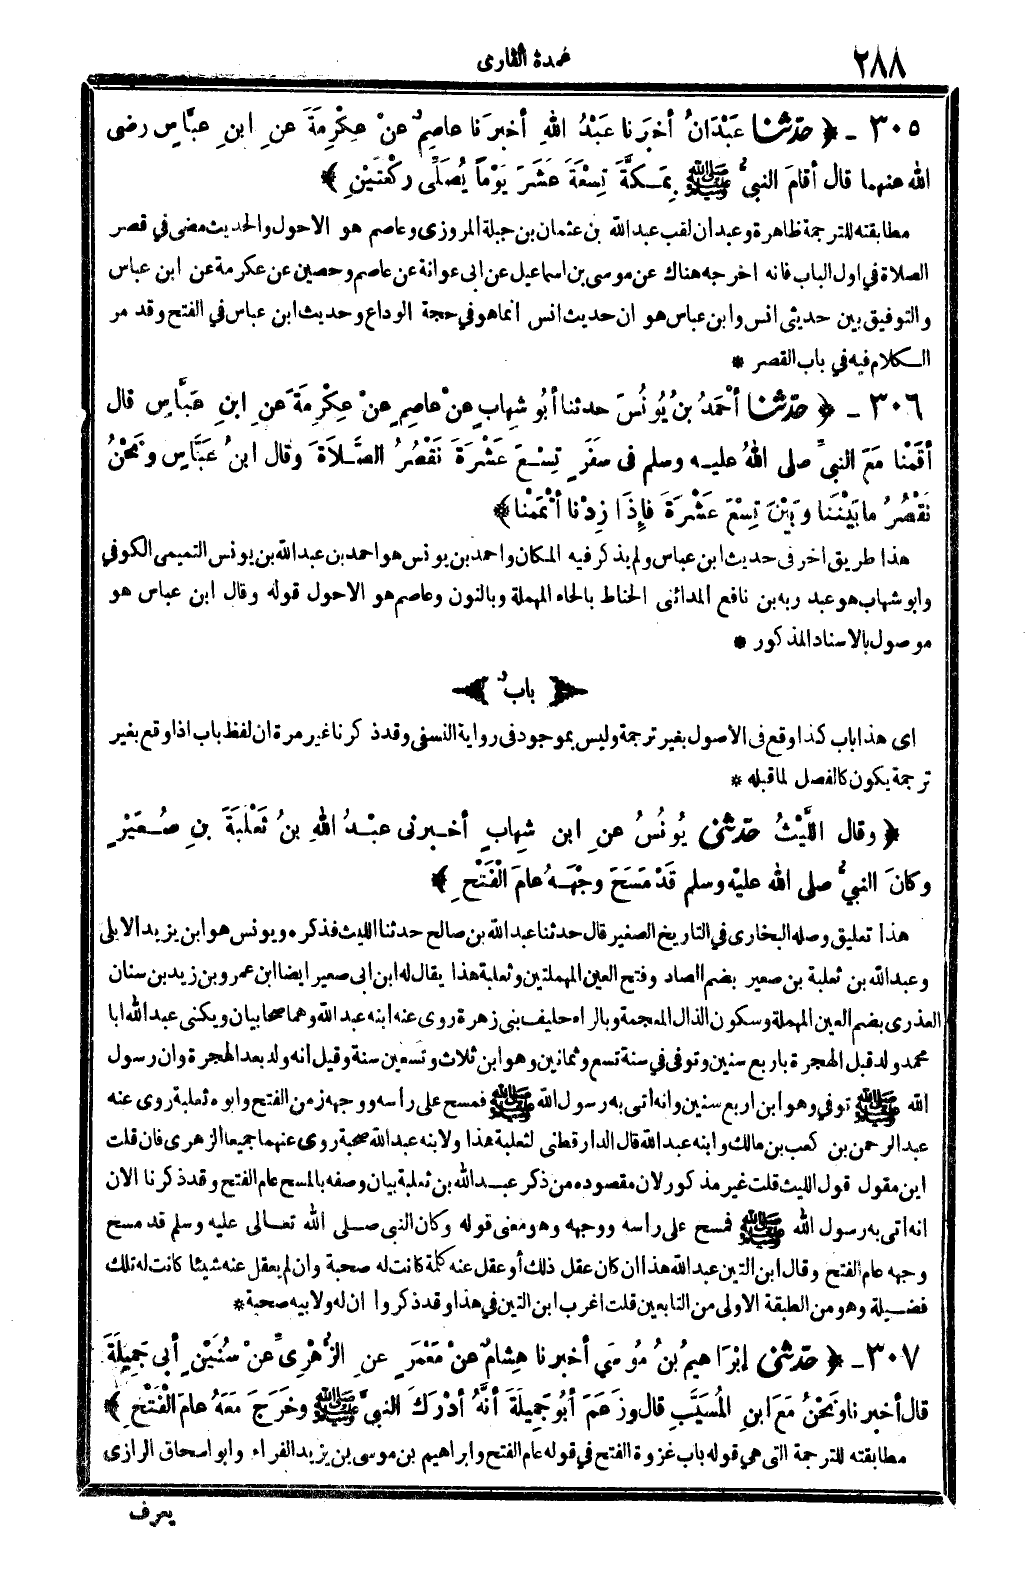 ٢٨٨
عمدة القارى
٣٠٥ ـ ﴿ حَدَّثَنَا عَبْدَانُ أخبرَنا عَبْدُ اللهِ أخبرَنا عاصِمٌ عنْ عِكْرِمَةَ عنِ ابنِ عبَّاسٍ رضى
الله عنهما قال أقامَ النبىُّ ﷺ بِمَكَّةَ تِسْعَةَ عَشَرَ يَوْماً يُصَلِّى رَكْعَتَيْنِ ﴾
مطابقته للترجمة ظاهرة وعبدان لقب عبدالله بن عثمان بن جبلة المروزى وعاصم هو الاحول والحديث مضى في قصر
الصلاة في اول الباب فانه اخرجه هناك عن موسى بن اسماعيل عن ابى عوانة عن عاصم وحصين عن عكرمة عن ابن عباس
والتوفيق بين حديثى انس وابن عباس هو ان حديث انس انما هو في حجة الوداع وحديث ابن عباس في الفتح وقد مر
الكلام فيه في باب القصر *
٣٠٦ ـ ﴿ حَدَّثَنَا أحْمَدُ بنُ يُونُسَ حدثنا أبُو شِهابٍ عنْ عاصِمٍ عنْ عِكْرِمَةَ عنِ ابنِ عبَّاسٍ قال
أقَمْنا مَعَ النبيِّ صلى اللهُ عليه وسلم فى سَفَرٍ تِسْعَ عَشْرَةَ نَقْصُرُ الصَّلاَةَ وقال ابنُ عَبَّاسٍ ونَحْنُ
نَقْصُرُ ما بَيْنَنا وَبَيْنَ تِسْعَ عَشْرَةَ فإِذَا زِدْنا أتْمَمْنا ﴾
هذا طريق اخر فى حديث ابن عباس ولم يذكر فيه المكان واحمد بن يونس هو احمد بن عبدالله بن يونس التميمى الكوفي
وابو شهاب هو عبد ربه بن نافع المدائنى الحناط بالحاء المهملة وبالنون وعاصم هو الاحول قوله وقال ابن عباس هو
موصول بالاسناد المذكور *
﴿ بابٌ ﴾
اى هذا باب كذا وقع فى الاصول بغير ترجمة وليس بموجود فى رواية النسفى وقد ذكرنا غير مرة ان لفظ باب اذا وقع بغير
ترجمة يكون كالفصل لما قبله *
﴿ وقال اللَّيْثُ حَدَّثَنى يُونُسُ عنِ ابن شِهابٍ أخبرنى عبْدُ اللهِ بنُ ثَعْلَبَةَ بنِ صُعَيْرٍ
وكانَ النبيُّ صلى الله عليْه وسلم قَدْ مَسَحَ وجْهَهُ عامَ الْفَتْحِ ﴾
هذا تعليق وصله البخارى في التاريخ الصغير قال حدثنا عبدالله بن صالح حدثنا الليث فذكره ويونس هو ابن يزيد الايلى
وعبدالله بن ثعلبة بن صعير بضم الصاد وفتح العين المهملتين وثعلبة هذا يقال له ابن ابى صعير ايضا ابن عمرو بن زيد بن سنان
العذرى بضم العين المهملة وسكون الذال المعجمة وبالراء حليف بنى زهرة روى عنه ابنه عبدالله وهما صحابيان ويكنى عبدالله ابا
محمد ولد قبل الهجرة باربع سنين وتوفى في سنة تسع وثمانين وهو ابن ثلاث وتسعين سنة وقيل انه ولد بعد الهجرة وان رسول
الله ﷺ توفي وهو ابن اربع سنين وانه اتى به رسول الله ﷺ فمسح على رأسه ووجهه زمن الفتح وابوه ثعلبة روى عنه
عبدالرحمن بن كعب بن مالك وابنه عبدالله قال الدارقطنى لثعلبة هذا ولابنه عبدالله صحبة روى عنهما جميعا الزهرى فان قلت
اين مقول قول الليث قلت غير مذكور لان مقصوده من ذكر عبدالله بن ثعلبة بيان وصفه بالمسح عام الفتح وقد ذكرنا الان
انه اتى به رسول الله ﷺ فمسح على راسه ووجهه وهو معنى قوله وكان النبى صلى الله تعالى عليه وسلم قد مسح
وجهه عام الفتح وقال ابن التين عبدالله هذا ان كان عقل ذلك أو عقل عنه كلمة كانت له صحبة وان لم يعقل عنه شيئا كانت له تلك
فضيلة وهو من الطبقة الاولى من التابعين قلت اغرب ابن التين في هذا وقد ذكروا ان له ولابيه صحبة *
٣٠٧ ـ ﴿ حَدَّثَنى إبْرَاهِيمُ بنُ مُوسَي أخبرنا هِشامٌ عنْ مَعْمَرٍ عنِ الزُّهْرِىِّ عنْ سُنَيْنٍ أبى جَمِيلَةَ
قال أخبرنا ونَحْنُ مَعَ ابنِ المُسَيَّبِ قال وزَعَمَ أبُو جَمِيلَةَ أنَّهُ أدْرَكَ النبيَّ ﷺ وخَرَجَ مَعَهُ عامَ الْفَتْحِ ﴾
مطابقته للترجمة التى هي قوله باب غزوة الفتح في قوله عام الفتح وابراهيم بن موسى بن يزيد الفراء وابو اسحاق الرازى
يعرف